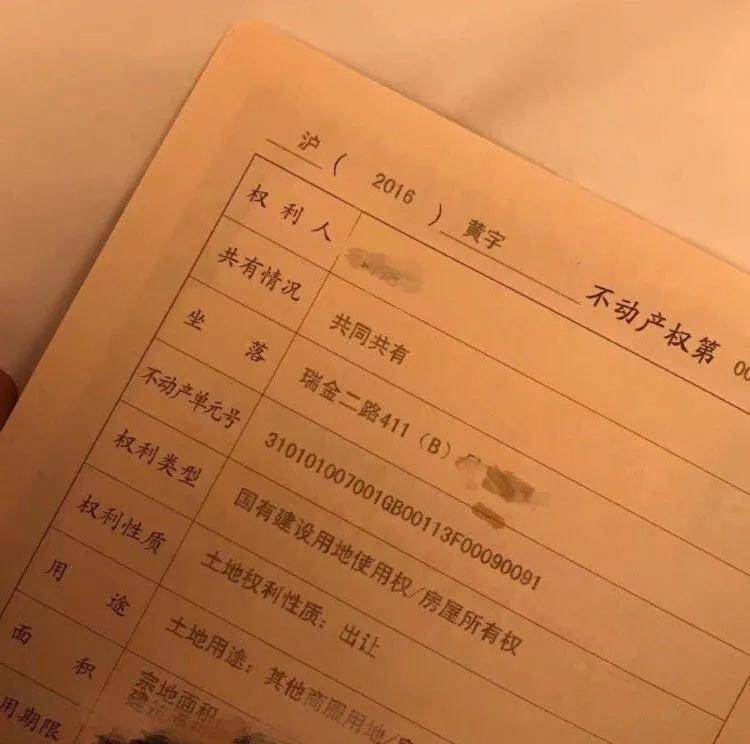 沪 ( 2016 ) 黄字 不动产权第 00
权利人
共有情况 共同共有
坐落 瑞金二路411（B）
不动产单元号 310101007001GB00113F00090091
权利类型 国有建设用地使用权/房屋所有权
权利性质 土地权利性质：出让
用途 土地用途：其他商服用地/
面积 宗地面积
用期限